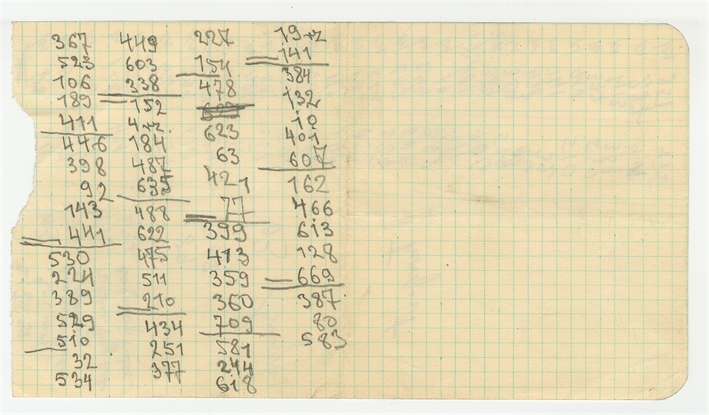 367
523
106
189
411
446
398
92
143
441
530
224
389
529
510
32
534
449
603
338
152
4+2.
184
487
635
488
622
475
511
210
434
251
377
227
154
478
623
63
421
77
399
413
359
360
709
581
244
618
19+2
141
384
132
10
401
607
162
466
613
128
669
387
80
583